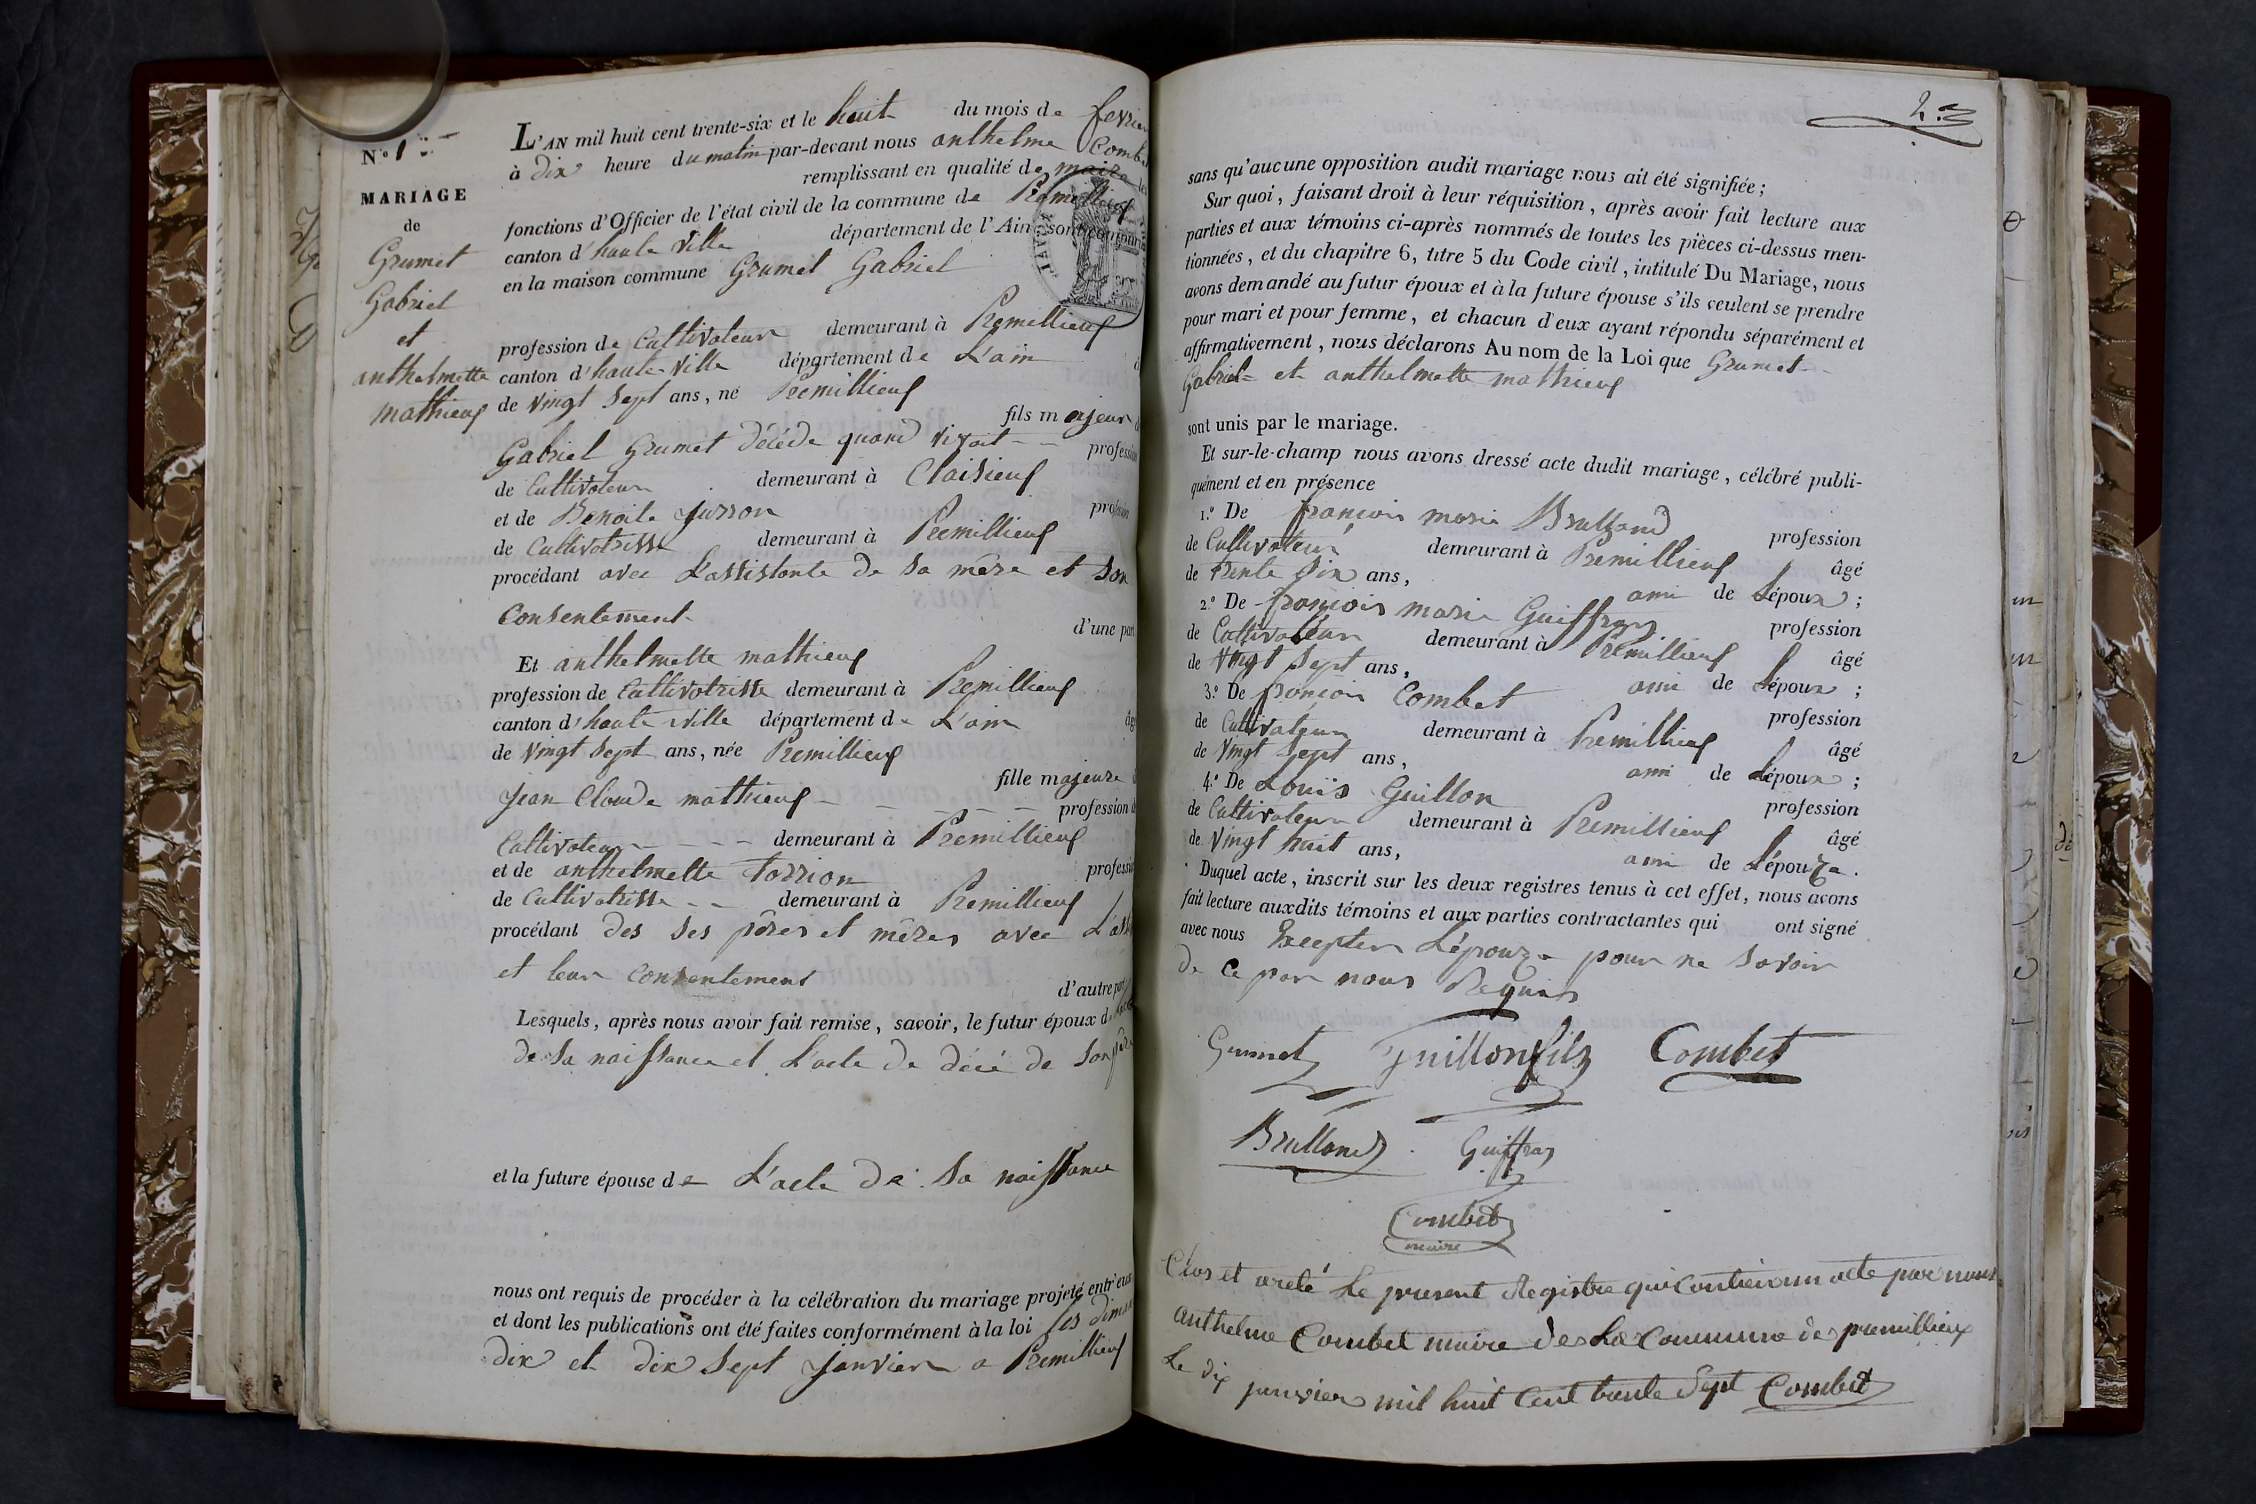 N.º 1
MARIAGE
de
Grumet
Gabriel
et
anthelmette
mathieuf
L'AN mil huit cent trente-six et le huit du mois de fevrier
à dix heure du matin par-devant nous anthelme Combet
remplissant en qualité de maire les
fonctions d'Officier de l'état civil de la commune de Premillieuf
canton d'haute Ville département de l'Ain, sont comparus
en la maison commune Grumet Gabriel
profession de Cultivateur demeurant à Premillieuf
canton d'haute-Ville département de L'ain
de Vingt Sept ans, né Premillieuf
fils majeur d
Gabriel Grumet décéde quand vivait - - profession
de Cultivateur demeurant à Claisieuf
et de Benoite Juzron profession
de Cultivatrisse demeurant à Premillieuf
procédant avec L'assistante de sa mère et son
Consentement-
d'une part
Et anthelmette mathieuf
profession de Cultivatrisse demeurant à Premillieuf
canton d'haute Ville département de L'ain âg
de Vingt Sept ans, née Premillieuf
fille majeure d
Jean Claude mathieuf - - - - - profession d
Cultivateur - - - - demeurant à Premillieuf
et de anthelmette torrion profession
de Cultivatrisse - - demeurant à Premillieuf
procédant des ses pères et mères avec L'ass
et leur Consentement
d'autre part
Lesquels, après nous avoir fait remise, savoir, le futur époux d
de sa naissance et L'acte de décé de son père
et la future épouse de L'acte de sa naissance
nous ont requis de procéder à la célébration du mariage projeté entr'eux
et dont les publications ont été faites conformément à la loi les diman
dix et dix Sept janvier a Premillieuf
2.
sans qu'aucune opposition audit mariage nous ait été signifiée;
Sur quoi, faisant droit à leur réquisition, après avoir fait lecture aux
parties et aux témoins ci-après nommés de toutes les pièces ci-dessus men-
tionnées, et du chapitre 6, titre 5 du Code civil, intitulé Du Mariage, nous
avons demandé au futur époux et à la future épouse s'ils veulent se prendre
pour mari et pour femme, et chacun d'eux ayant répondu séparément et
affirmativement, nous déclarons Au nom de la Loi que Grumet-
Gabriel- et anthelmette mathieuf
sont unis par le mariage.
Et sur-le-champ nous avons dressé acte dudit mariage, célébré publi-
quement et en présence
1.º De françois marie Brulland profession
de Cultivateur demeurant à Premillieuf âgé
de trente six ans, ami de Lépoux;
2.º De françois marie Guiffray profession
de Cultivateur demeurant à Premillieuf âgé
de Vingt Sept ans, ami de Lépoux;
3.º De françois Combet profession
de Cultivateur demeurant à Premillieuf âgé
de Vingt Sept ans, ami de Lépoux;
4.º De Louis Guillon profession
de Cultivateur demeurant à Premillieuf âgé
de Vingt huit ans, ami de L'épouze.
Duquel acte, inscrit sur les deux registres tenus à cet effet, nous avons
fait lecture auxdits témoins et aux parties contractantes qui ont signé
avec nous Excepter L'épouze pour ne savoir
de ce par nous Requis
Grumet Guillon fils Combet
Brulland Guiffray
Combet
maire
Clos et areté Le present Registre qui contien un acte par nous
anthelme Combet maire de La Commune de premillieux
Le dix janvier mil huit Cent trente Sept Combet